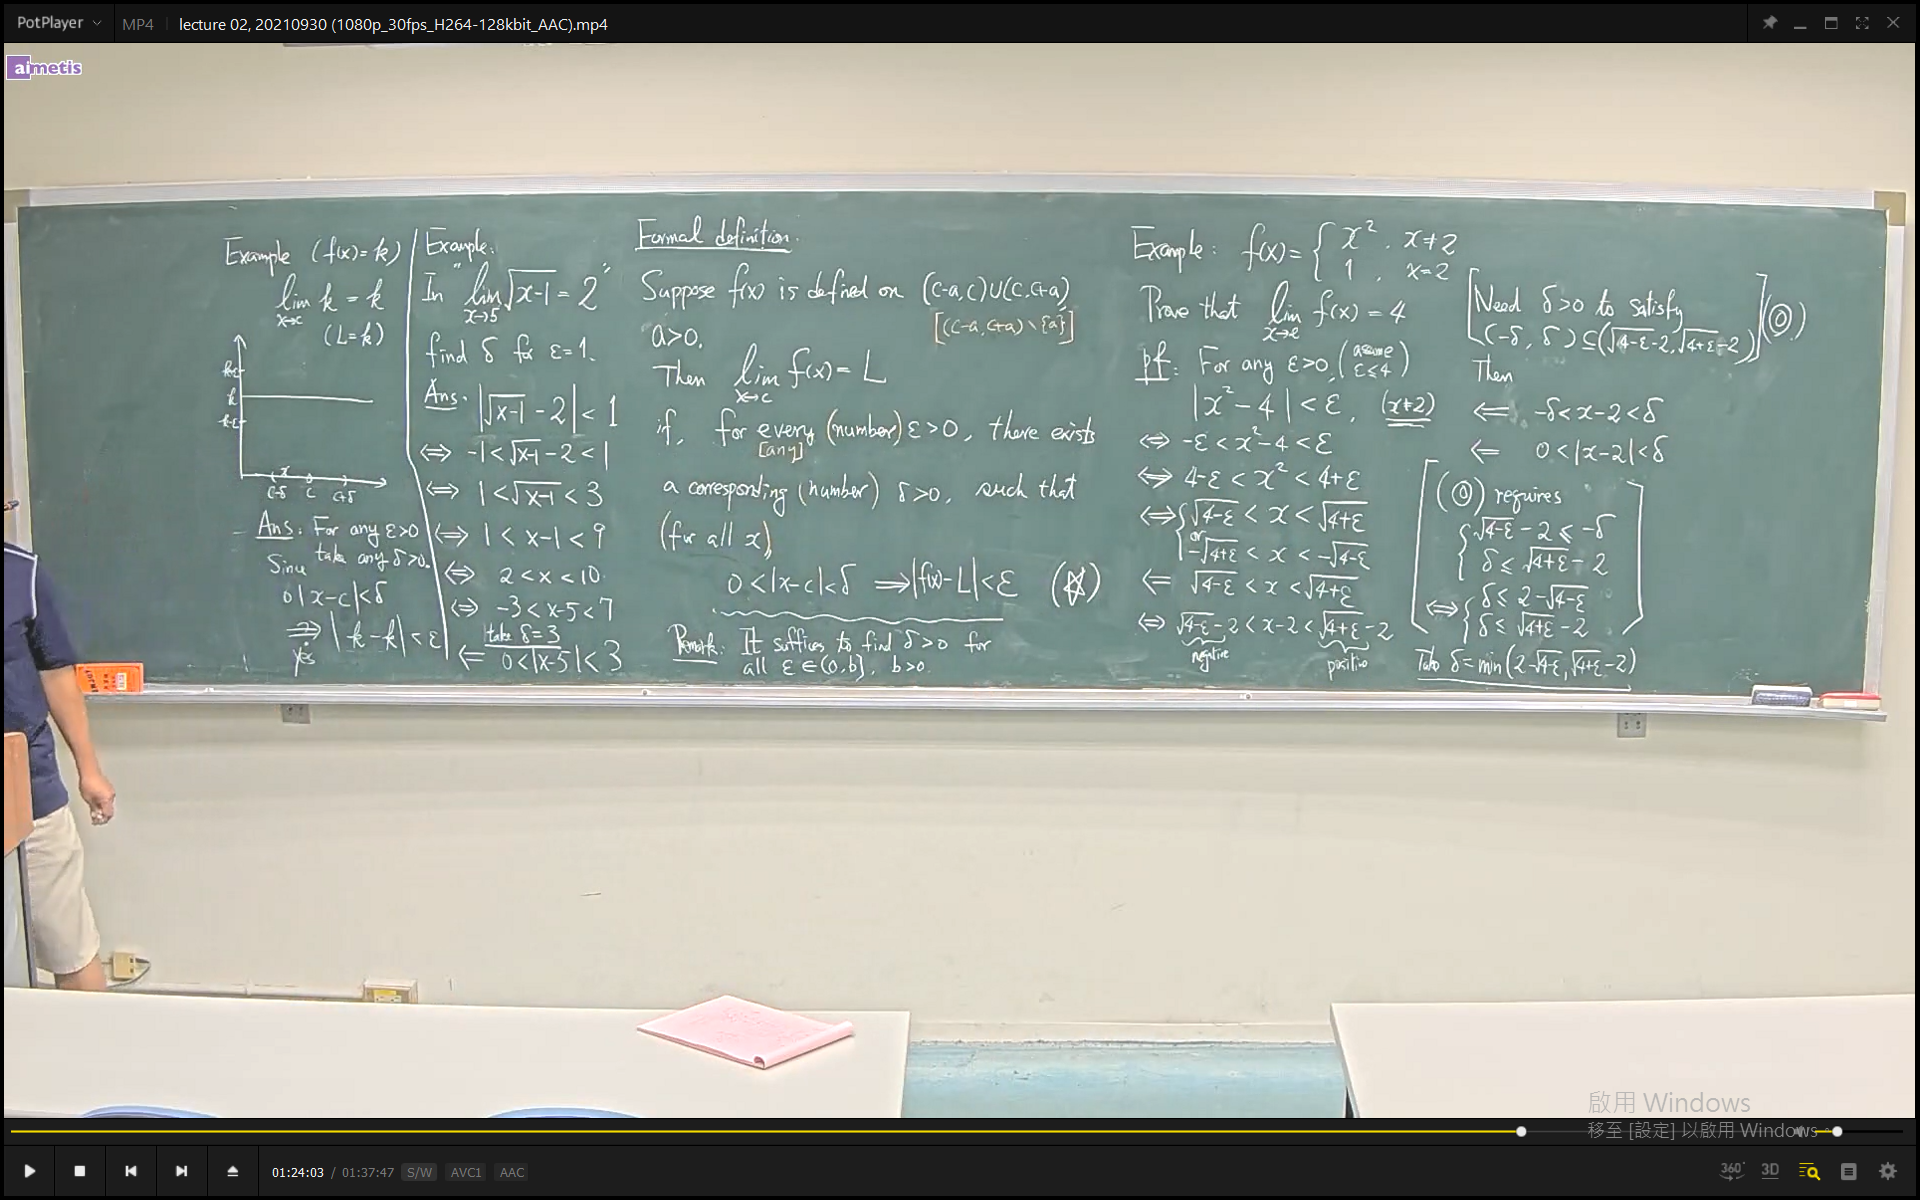 PotPlayer
MP4
lecture 02, 20210930 (1080p_30fps_H264-128kbit_AAC).mp4
aimetis
Example (f(x)=k)
lim k = k
x→c
(L=k)
k+ε
k
k-ε
x
c-δ c c+δ
Ans: For any ε>0
take any δ>0.
Since
0|x-c|<δ
⇒ |k-k|<ε
yes
Example:
In "lim √x-1 = 2"
x→5
find δ for ε=1.
Ans. |√x-1 - 2| < 1
⇔ -1<√x-1-2<1
⇔ 1<√x-1<3
⇔ 1<x-1<9
⇔ 2<x<10.
⇔ -3<x-5<7
take δ=3
⇐ 0<|x-5|<3
Formal definition.
Suppose f(x) is defined on (c-a,c)∪(c,c+a)
[(c-a,c+a)\{a}]
a>0.
Then lim f(x)= L
x→c
if, for every (number) ε>0, there exists
[any]
a corresponding (number) δ>0, such that
(for all x)
0<|x-c|<δ ⇒|f(x)-L|<ε (☆)
Remark: It suffices to find δ>0 for
all ε∈(0,b], b>0.
Example: f(x)= { x², x≠2
1, x=2
Prove that lim f(x)=4
pf: For any ε>0, (assume
ε≤4)
|x²-4|<ε, (x≠2)
⇔ -ε<x²-4<ε
⇔ 4-ε<x²<4+ε
⇔ { √4-ε<x<√4+ε
or
-√4+ε<x<-√4-ε
⇐ √4-ε<x<√4+ε
⇔ √4-ε-2<x-2<√4+ε-2
negative
positive
[Need δ>0 to satisfy
(-δ, δ)⊆(√4-ε-2,√4+ε-2)] (◎)
Then
⇐ -δ<x-2<δ
⇐ 0<|x-2|<δ
[(◎) requires
{ √4-ε-2≤-δ
δ≤√4+ε-2
⇔ { δ≤2-√4-ε
δ≤√4+ε-2 ]
Take δ=min(2-√4-ε,√4+ε-2)
啟用 Windows
移至 [設定] 以啟用 Windows。
01:24:03 / 01:37:47 S/W AVC1 AAC
360° 3D